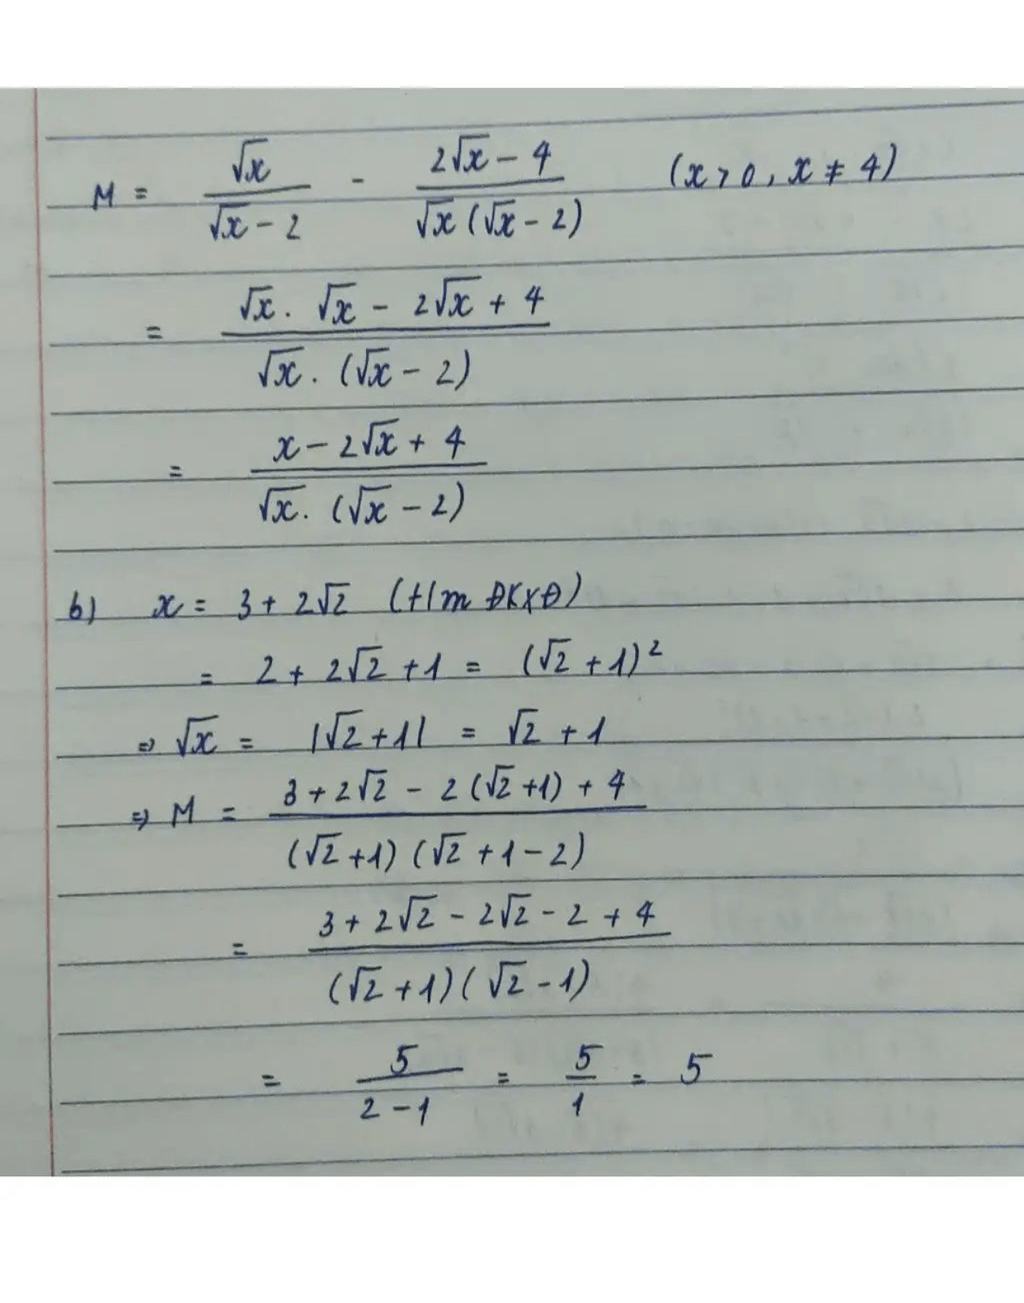 M = √x / (√x - 2) - (2√x - 4) / (√x (√x - 2)) (x > 0, x ≠ 4)
= (√x . √x - 2√x + 4) / (√x . (√x - 2))
= (x - 2√x + 4) / (√x . (√x - 2))
b) x = 3 + 2√2 (t/m ĐKXĐ)
= 2 + 2√2 + 1 = (√2 + 1)²
=> √x = |√2 + 1| = √2 + 1
=> M = (3 + 2√2 - 2(√2 + 1) + 4) / ((√2 + 1)(√2 + 1 - 2))
= (3 + 2√2 - 2√2 - 2 + 4) / ((√2 + 1)(√2 - 1))
= 5 / (2 - 1) = 5/1 = 5